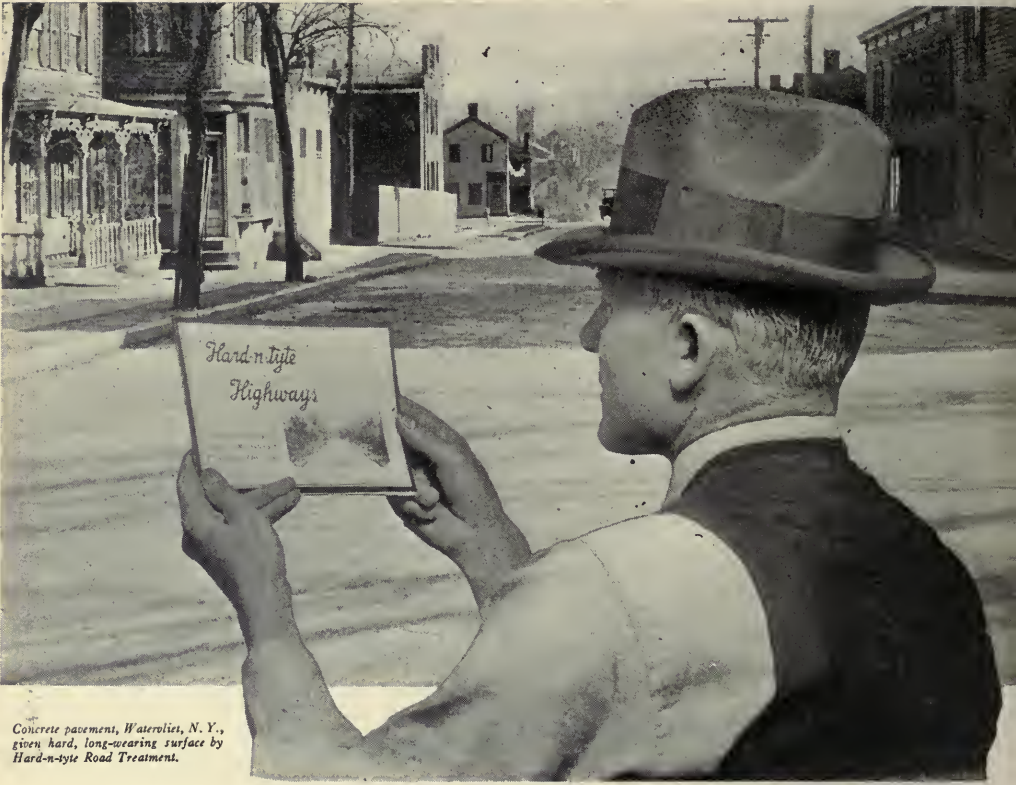 Hard-n-tyte
Highways
Concrete pavement, Watervliet, N. Y.,
given hard, long-wearing surface by
Hard-n-tyte Road Treatment.